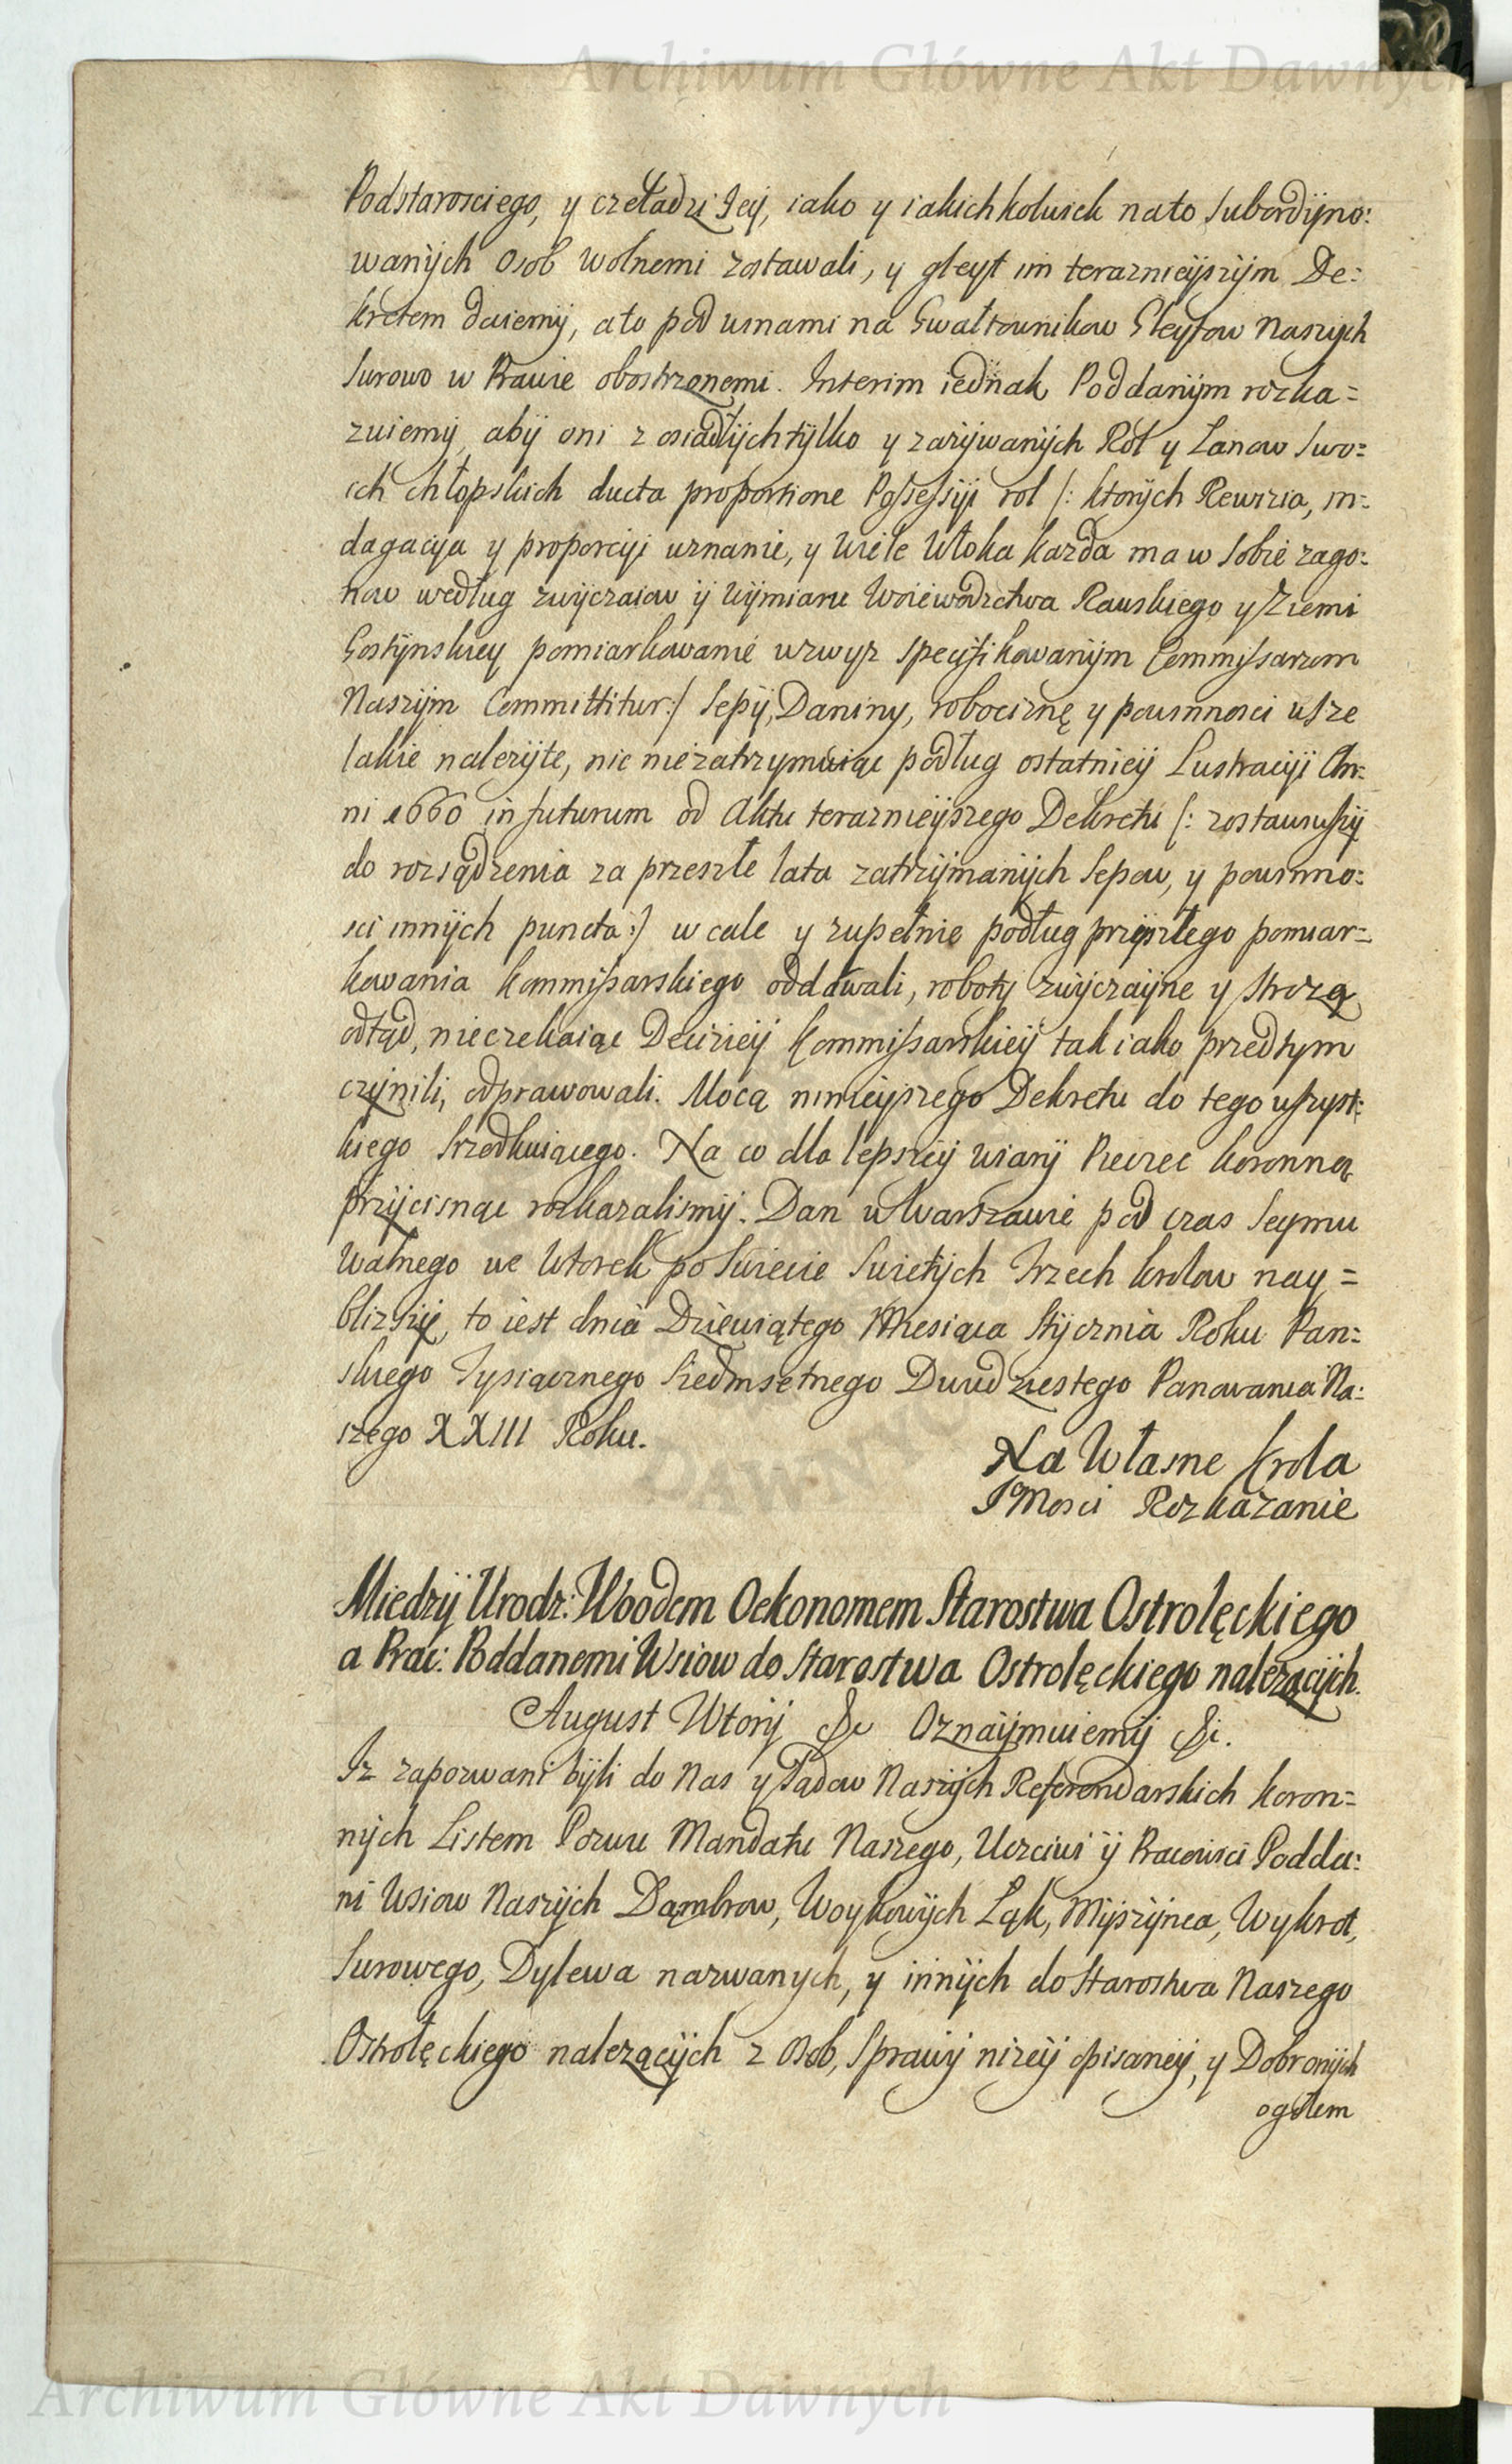 Archiwum Główne Akt Dawnych
Podstarosciego, y czeładzi Jey, iako y iakichkolwiek nato subordÿno:
wanÿch osob wolnemi zostawali, y gleyt im terazniejszÿm De:
kretem daiemÿ, a to pod winami na Gwałtownikow Gleytow Naszych
surowo w Prawie obostrzonemi. Interim iednak Poddanÿm rozka=
zuiemÿ, abÿ oni z osiadłÿch tÿlko y zażÿwanÿch Rol y Łanow swo=
ich chłopskich ducta proportione Possessÿi rol /: ktorÿch Rewizia, in=
dagacya y proporcÿi uznanie, y wiele Włoka każda ma w sobie zago:
now według zwÿczaiow ÿ wÿmiaru Woiewodztwa Rawskiego y Ziemi
Gostÿnskiey pomiarkowanie wzwyż specÿfikowanÿm Commissarzom
Naszÿm Committitur :/ Sepÿ, Daninÿ, robociznę y powinnosci wsze
lakie należÿte, nic niezatrzymuiąc podług ostatnieÿ Lustracÿi An=
ni 1660 in futurum od Aktu terazniejszego Dekretu /: zostawuszÿ
do rozsądzenia za przeszłe lata zatrzÿmanÿch Sepow, y powinno:
sci innÿch puncta :/ w cale y zupełnie podług przÿszłego pomiar=
kowania Kommissarskiego oddawali, robotÿ zwÿczaÿne y strozą
odtąd, nieczekaiąc Decizieÿ Kommissarskieÿ tak iako przedtym
czÿnili, odprawowali. Mocą ninieÿszego Dekretu do tego wszyst:
kiego srzodkuiącego. Na co dla lepszeÿ wiarÿ Pieczęc koronną
przÿcisnąc rozkazalismÿ. Dan w Warszawie pod czas Seymu
Walnego we Wtorek po Swiecie Swietÿch Trzech krolow nay=
bliższÿ, to iest dnia Dziewiątego Miesiąca Stÿcznia Roku Pan=
skiego Tysiącznego Siedmsetnego Dwudziestego Panowania Na:
szego XXIII Roku.
Na Własne Krola
JMosci Rozkazanie
Miedzÿ Urodz: Woodem Oekonomem Starostwa Ostrołęckiego
a Prac: Poddanemi Wsiow do Starostwa Ostrołęckiego należącÿch.
August Wtorÿ &c Oznaÿmuiemÿ &c.
Iż zapozwani bÿli do Nas y Sądow Naszÿch Referendarskich koron=
nÿch Listem Pozwu Mandatu Naszego, Uczciwi ÿ Pracowici Podda:
ni Wsiow Naszÿch Dąmbrow, Woykowÿch Łąk, Mÿszÿnca, Wykrot,
Surowego, Dylewa nazwanych, y innÿch do Starostwa Naszego
Ostrołęckiego należącÿch z osob, sprawÿ niżeÿ opisaneÿ, y Dobr onÿch
ogołem
Archiwum Główne Akt Dawnych